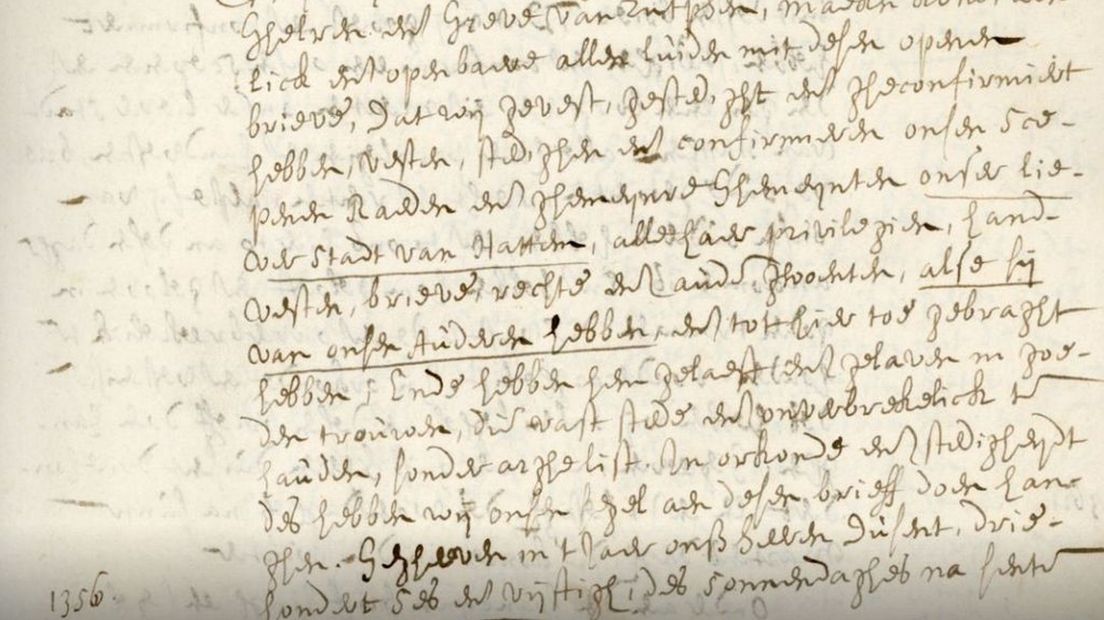 Ghelren end Greve van Zutphen, maken
lick end openbaere allen luiden mit desen openen
brieve, dat wij gevest, gested, ght end gheconfirmiert
hebben, vesten, sted, ghen end confirmeren onsen Sce-
penen Raeden end ghemeynre Ghemeynten onser lie-
ver Stadt van Hattem, alle haer privilegien, hand-
vesten, brieve, rechte end aude gwoenten, alse sij
van onsen Auderen hebben, end tott hier toe gebraght
hebben, Ende hebben hen gelaeft end gelaven in goe-
den trouwen, die vast stede end onverbrekelick te
hauden, sonder arghelist. In orkonde end stedigheyt
des hebben wij onsen segel aen desen brieff doen han-
ghen. Gegheven in t Jaer onss Heeren Dusent, drie-
hondert Ses end vijftigh, des Sonnendaghes na sente
1356.